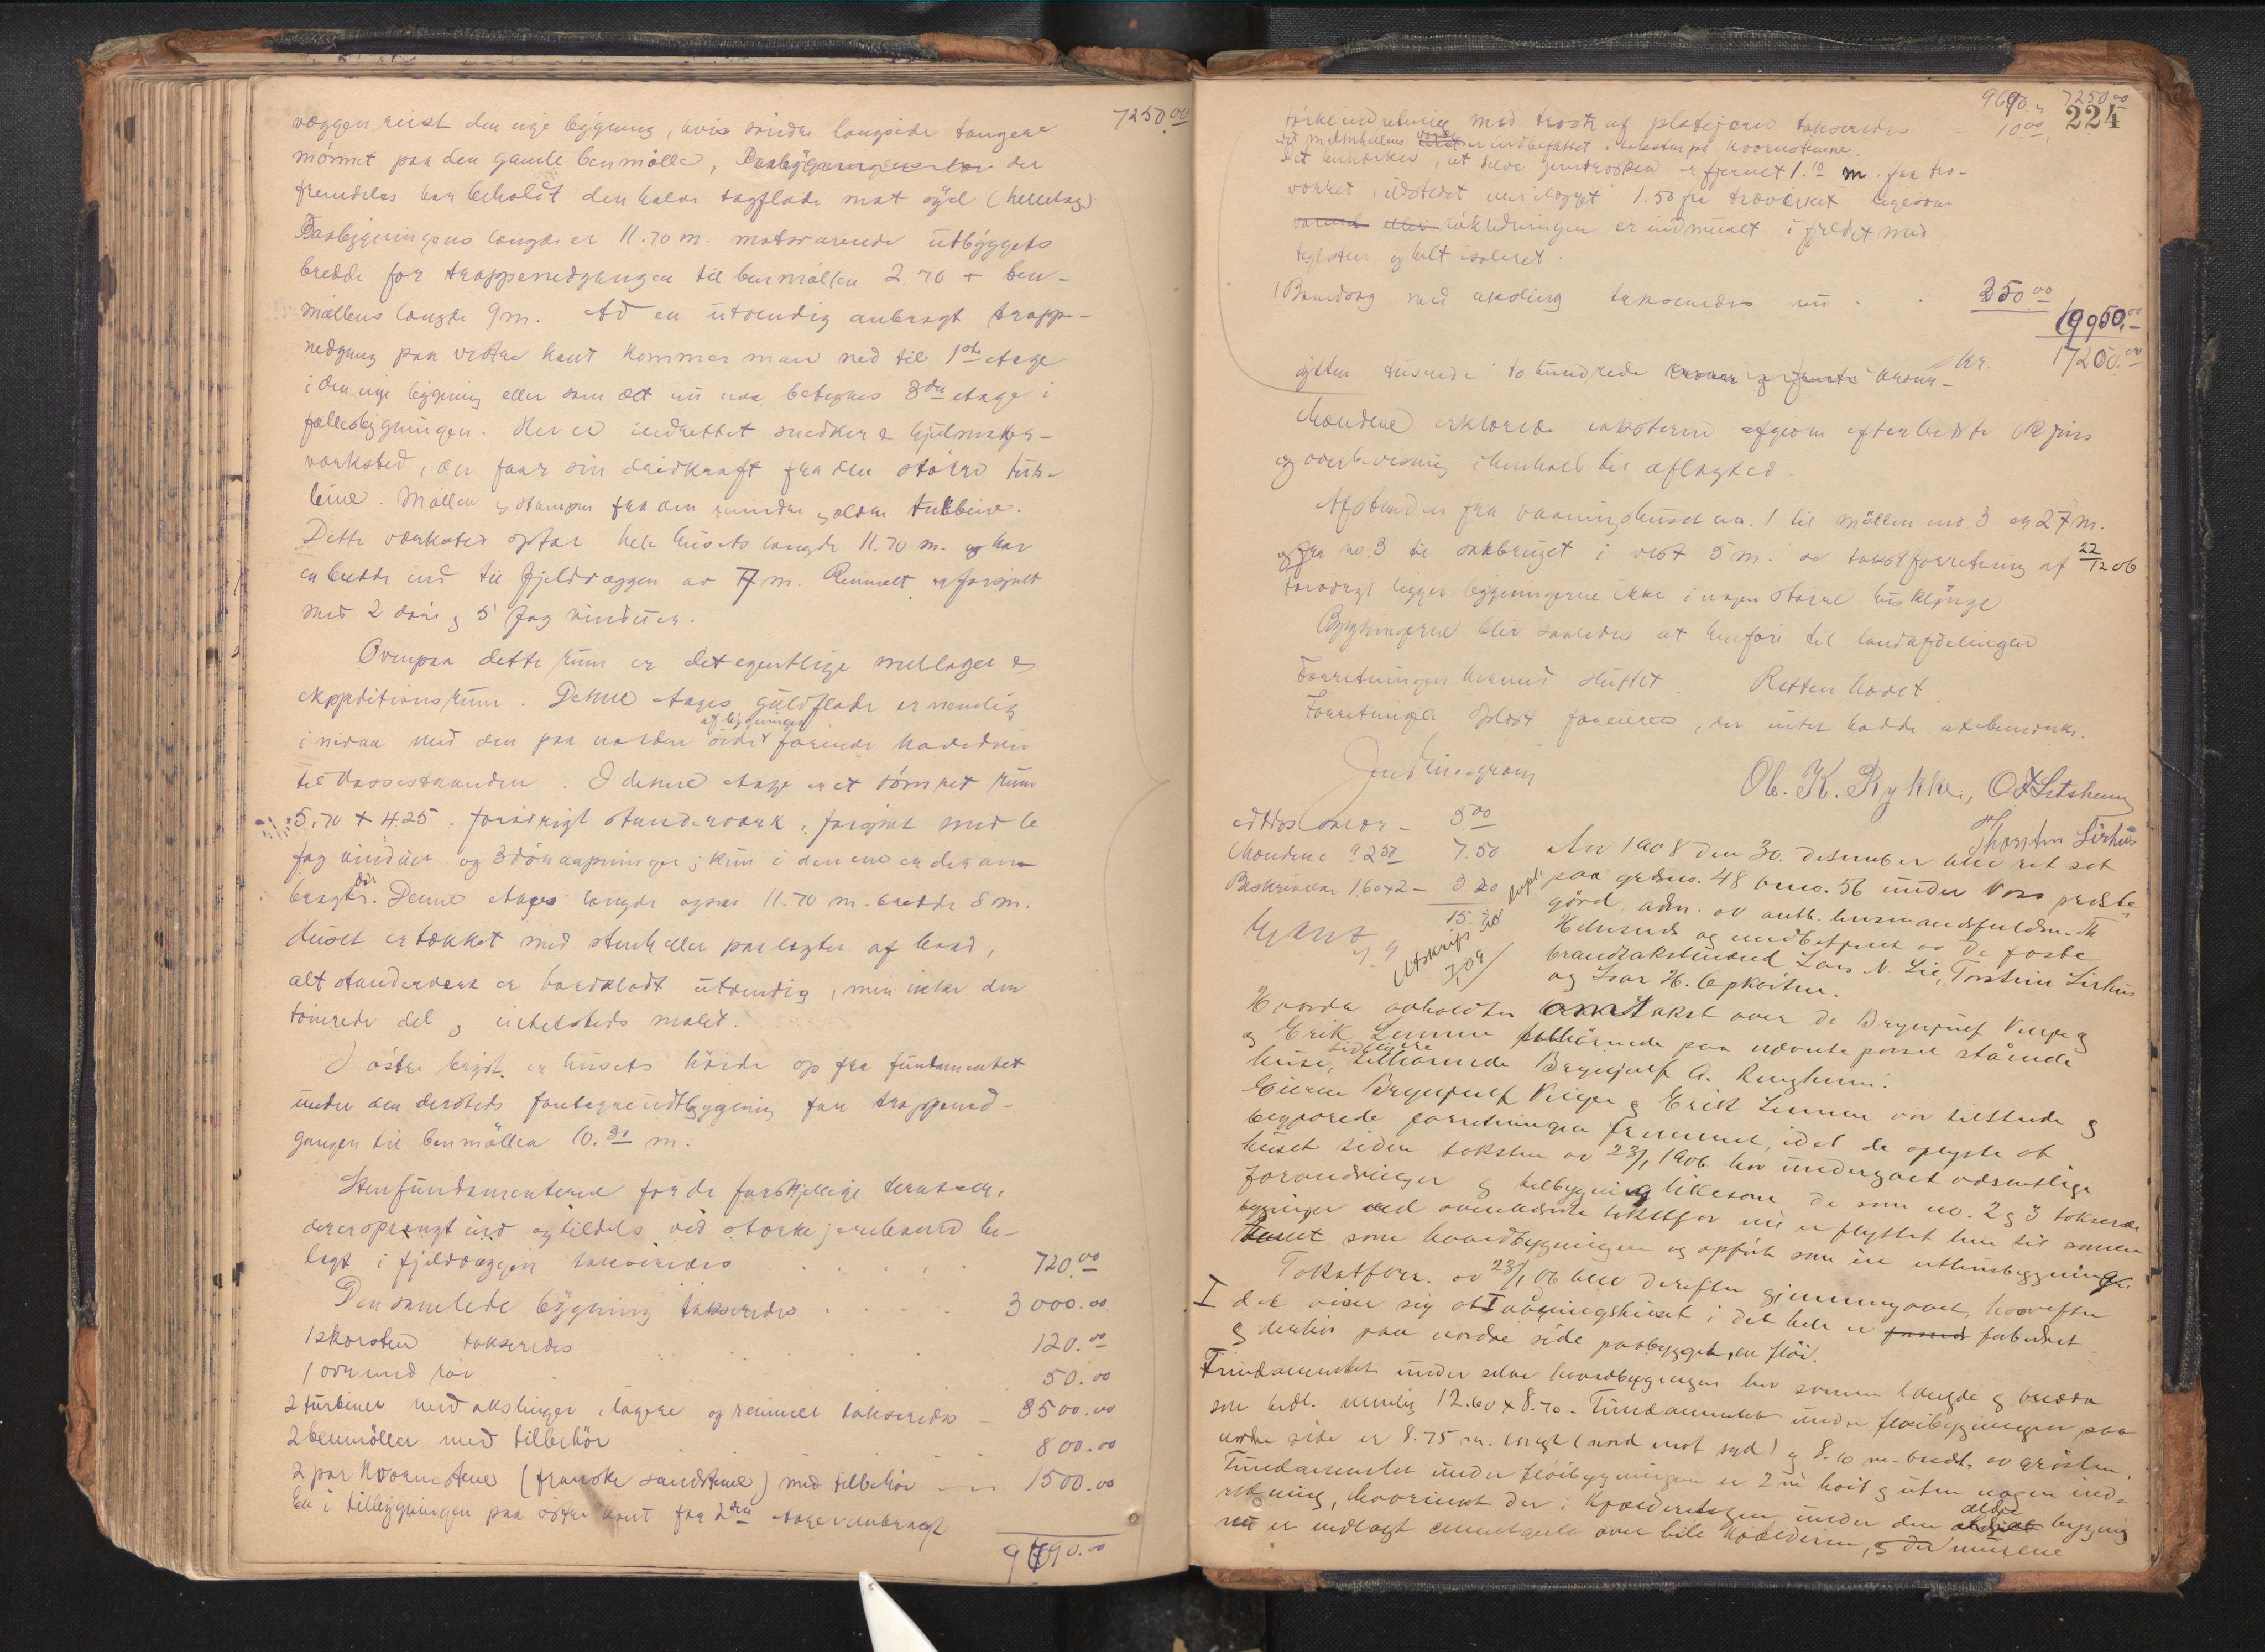 7250.00
væggen reist den nye bygning, hvis søndre langside tangere
mønnet paa den gamle benmølle, der
fremdeles har beholdt den halve tagflade mot syd (helletag)
Paabygningens længde er 11.70 m. motsvarende utbyggets
bredde for trappenedgangen til benmøllen 2.70 + ben-
møllens længde 9 m. Ad en utvendig anbragt trappe-
nedgang paa vestre kant kommer man ned til 1ste etage
i den nye bygning eller som det nu maa betegnes 3die etage i
fællesbygningen. Her er indrettet snedker & hjulmaker-
verksted, der faar sin drivkraft fra den større tur-
bine. Møllen og stampen fra den mindre, ældre turbine.
Dette verksted optar hele husets længde 11.70 m. og har
en bredde ind til fjeldvæggen av 7 m. Rummet er forsynt
med 2 døre og 5 fag vinduer.
Ovenpaa dette rum er det egentlige mellager &
ekspeditionsrum. Denne etages gulvflade er nemlig
i niveau med den paa nordre side af bygningen førende hoveddør
til Vossestranden. I denne etage er et tømret rum
5.70 + 4.25. forøvrigt stenderverk, forsynt med 6
fag vinduer og 3 døraapninger; kun i den ene er der an-
bragt dør. Denne etages længde ogsaa 11.70 m. bredde 8 m.
Huset er tækket med stenheller paa lægter af bord,
alt stenderverk er bordklædt utvendig, men ikke den
tømrede del og intetsteds malet.
I østre kryst er husets høide op fra fundamentet
under den dersteds foretagne utbygning for trappened-
gangen til benmøllen 10.30 m.
Stenfundamenterne for de forskjellige terasser,
derer sprengt ind og tildels ved sterke jernbaand be-
lagt i fjeldvæggen takseredes 720.00
Den samlede bygning takseredes 3000.00
1 skorsten takseredes 120.00
1 ovn med rør 50.00
2 turbiner med akslinger, lagere og remmer takseredes 3500.00
2 benmøller med tilbehør 800.00
2 par kvernstene (franske sandstene) med tilbehør 1500.00
En i tilbygningen paa østre kant fra 2den etage anbragt
9690.00
9690.00 7250.00
224
tørkeindretning med trosk af platejern takseredes 10.00
er indbefattet i taksten paa kvernstenene.
Det bemerkes, at selve jerntrosken er fjernet 1.10 m. fra træ-
verket, ildstedet 1.50 fra træverket
røkledningen er indmuret i fjeldet med
teglsten og helt isoleret.
1 Baandsag med aksling takseredes 250.00
9950.00
Kr. 17200.00
sytten tusende to hundrede kroner
Mændene erklærede taksterne afgivne efter bedste skjøn
og overbevisning i henhold til aflagt ed.
Afstanden fra vaaningshuset no. 1 til møllen no. 3 er 27 m.
og fra no. 3 til sakbruget i vest 5 m. av takstforretning af 22/12 06
Forøvrigt ligger bygningerne ikke i nogen større husklynge
Bygningerne blir saaledes at henføre til landafdelingen
Forretningen hermed sluttet. Retten hævet.
Forretningen oplæst for eieren, der intet hadde at bemerke.
Ole. K. Rykke, O. J. Setsheim
Thorsten Lirhus
5.00
Mændene á 2.50 7.50
Beskrivelse 1.60 x 2 3.20
15.70
Utskrift
7/1 09
Aar 1908 den 30. desember blev ret sat
paa grdsno. 48 brno. 56 under Voss preste
gjeld adm. av auth. lensmandsfuldm. Th
Helmers og medbetjent av de faste
brandtakstmænd Lars N. Lie, Torstein Lirhus
og Ivar H. Opkvitne.
Hvorda avholdtes omtakst over de Brynjulf Vinje og
og Erik Lemme tilhørende paa nævnte parsel stående
huse, tidligere tilhørende Brynjulf A. Ringheim.
Eierne Brynjulf Vinje og Erik Lemme var tilstede og
begjærede forretningen fremmet, idet de oplyste at
huset siden taksten av 23/1 1906 har undergaaet væsentlige
forandringer og tilbygning likesom de som no. 2 og 3 takserede
bygninger ved takstfor nu er flyttet hen til samme
tomt som hovedbygningen og opført som en uthusbygning.
Takstforr. av 23/1 06 blev derefter gjennemgaaet, hvorefter
det viser sig at I vaaningshuset i det hele er forbedret
og derhos paa nordre side paabygget en fløi.
Fundamentet under selve hovedbygningen har samme længde og bredde
som bedt. nemlig 12.60 x 8.70. Fundamentet under fløibygningen paa
nordre side er 8.75 m. langt (nord mot syd) og 8.10 m. bredt, av gråsten.
Fundamentet under fløibygningen er 2 m høit og uten nogen ind-
retning, hvorimot der i kjælderetagen under den ældre bygning
nu er indlagt cementgulv over hele kjælderen, og der murene